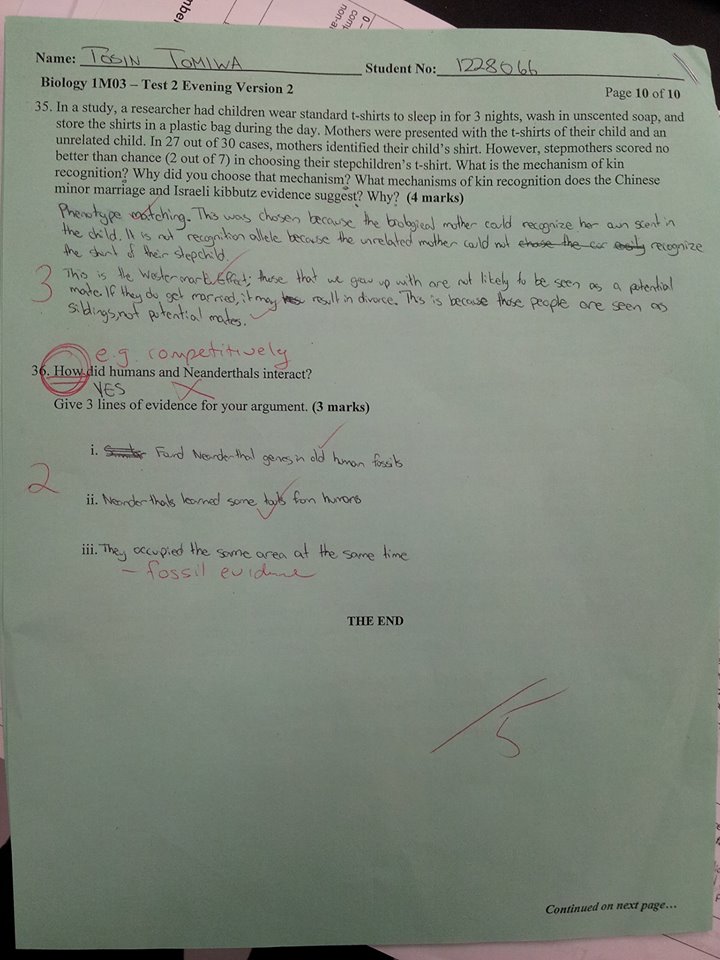 Name: TOSIN TOMIWA Student No: 1228066
Biology 1M03 – Test 2 Evening Version 2 Page 10 of 10
35. In a study, a researcher had children wear standard t-shirts to sleep in for 3 nights, wash in unscented soap, and
store the shirts in a plastic bag during the day. Mothers were presented with the t-shirts of their child and an
unrelated child. In 27 out of 30 cases, mothers identified their child's shirt. However, stepmothers scored no
better than chance (2 out of 7) in choosing their stepchildren's t-shirt. What is the mechanism of kin
recognition? Why did you choose that mechanism? What mechanisms of kin recognition does the Chinese
minor marriage and Israeli kibbutz evidence suggest? Why? (4 marks)
Phenotype matching. This was chosen because the biological mother could recognize her own scent in
the child. It is not recognition allele because the unrelated mother could not recognize
the shirt of their stepchild.
3 This is the Westermark Effect; those that we grew up with are not likely to be seen as a potential
mate. If they do get married, it may result in divorce. This is because those people are seen as
siblings, not potential mates.
e.g. competitively
36. How did humans and Neanderthals interact?
YES
Give 3 lines of evidence for your argument. (3 marks)
i. Found Neanderthal genes in old human fossils
2
ii. Neanderthals learned some tools from humans
iii. They occupied the same area at the same time
– fossil evidence
THE END
/5
Continued on next page…